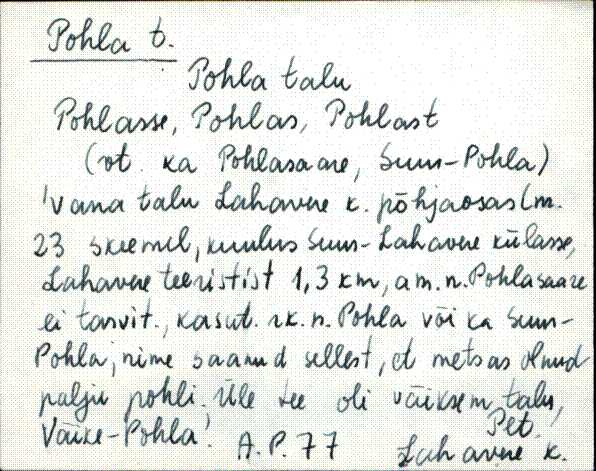 Pohla t.
Pohla talu
Pohlasse, Pohlas, Pohlast
(vt. ka Pohlasaare, Suur-Pohla)
'Vana talu Lahavere k. põhjaosas (nr.
23 skeemil, kuulus Suur-Lahavere külasse,
Lahavere teeristist 1,3 km, am.n. Pohlasaare
ei tarvit., kasut. rk.n. Pohla või ka Suur-
Pohla; nime saanud sellest, et metsas olnud
palju pohli. Üle tee oli väiksem talu,
Väike-Pohla'.
A.P. 77
Pet.
Lahavere k.